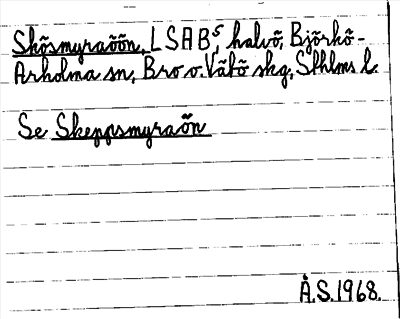 Skõsmyraõõn, LSAB⁵, halvõ, Björkõ-
Arholma sn, Bro o. Vätõ skg, Sthlms l.
Se Skeppsmyraõn
Å.S. 1968.